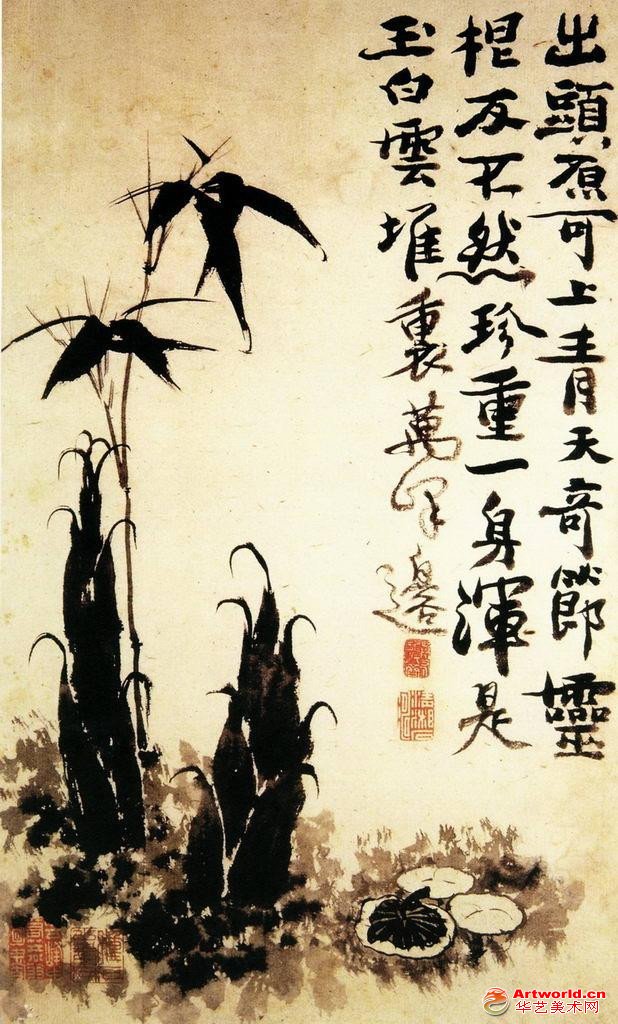 出頭原可上青天奇節靈
根反不然珍重一身渾是
玉白雲堆裏萬峯邊
Artworld.cn
华艺美术网